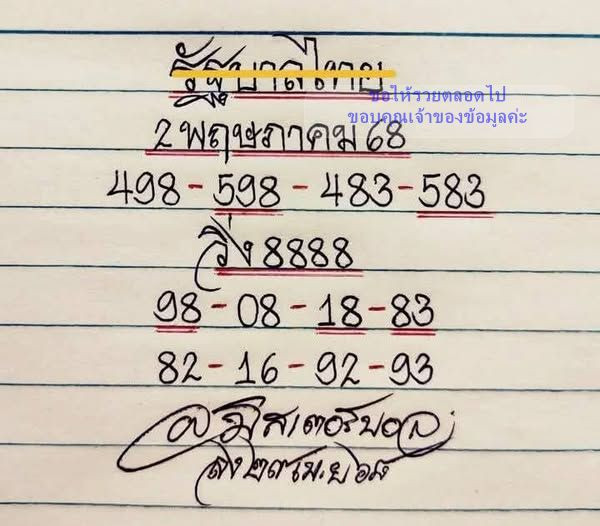 รัฐบาลไทย
ขอให้รวยตลอดไป
ขอบคุณเจ้าของข้อมูลค่ะ
2 พฤษภาคม 68
498 - 598 - 483 - 583
วิ่ง 8888
98 - 08 - 18 - 83
82 - 16 - 92 - 93
มิสเตอร์บอล